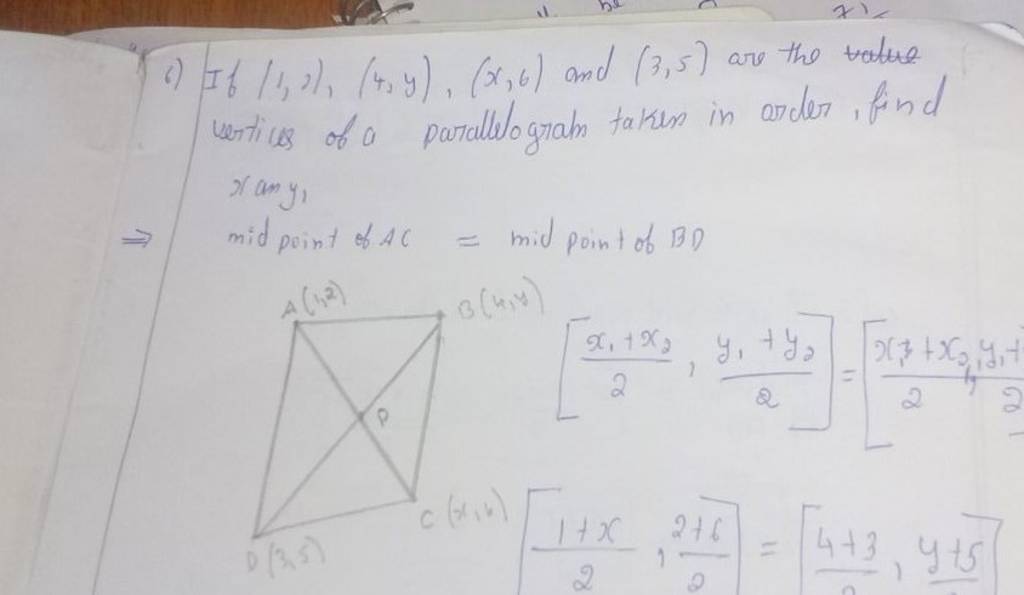 6) If (1,2), (4,y), (x,6) and (3,5) are the value
vertices of a parallelogram taken in order, find
x any,
⇒ mid point of AC = mid point of BD
A(1,2)
B(4,y)
P
C(x,6)
D(3,5)
[x₁+x₂/2, y₁+y₂/2] = [x₁+x₂/2, y₁+/2
[1+x/2, 2+6/2] = [4+3/2, y+5]